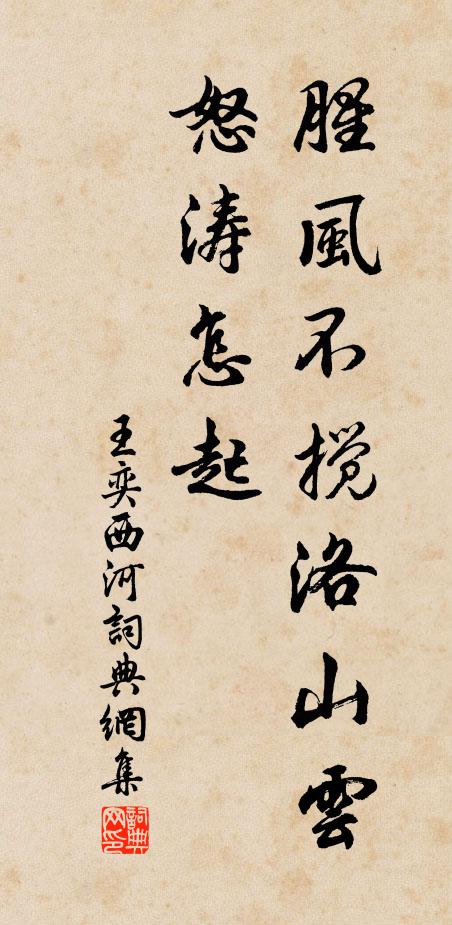 腥風不攪洛山雲
怒濤怎起
王奕西河詞典網集
詞典网印